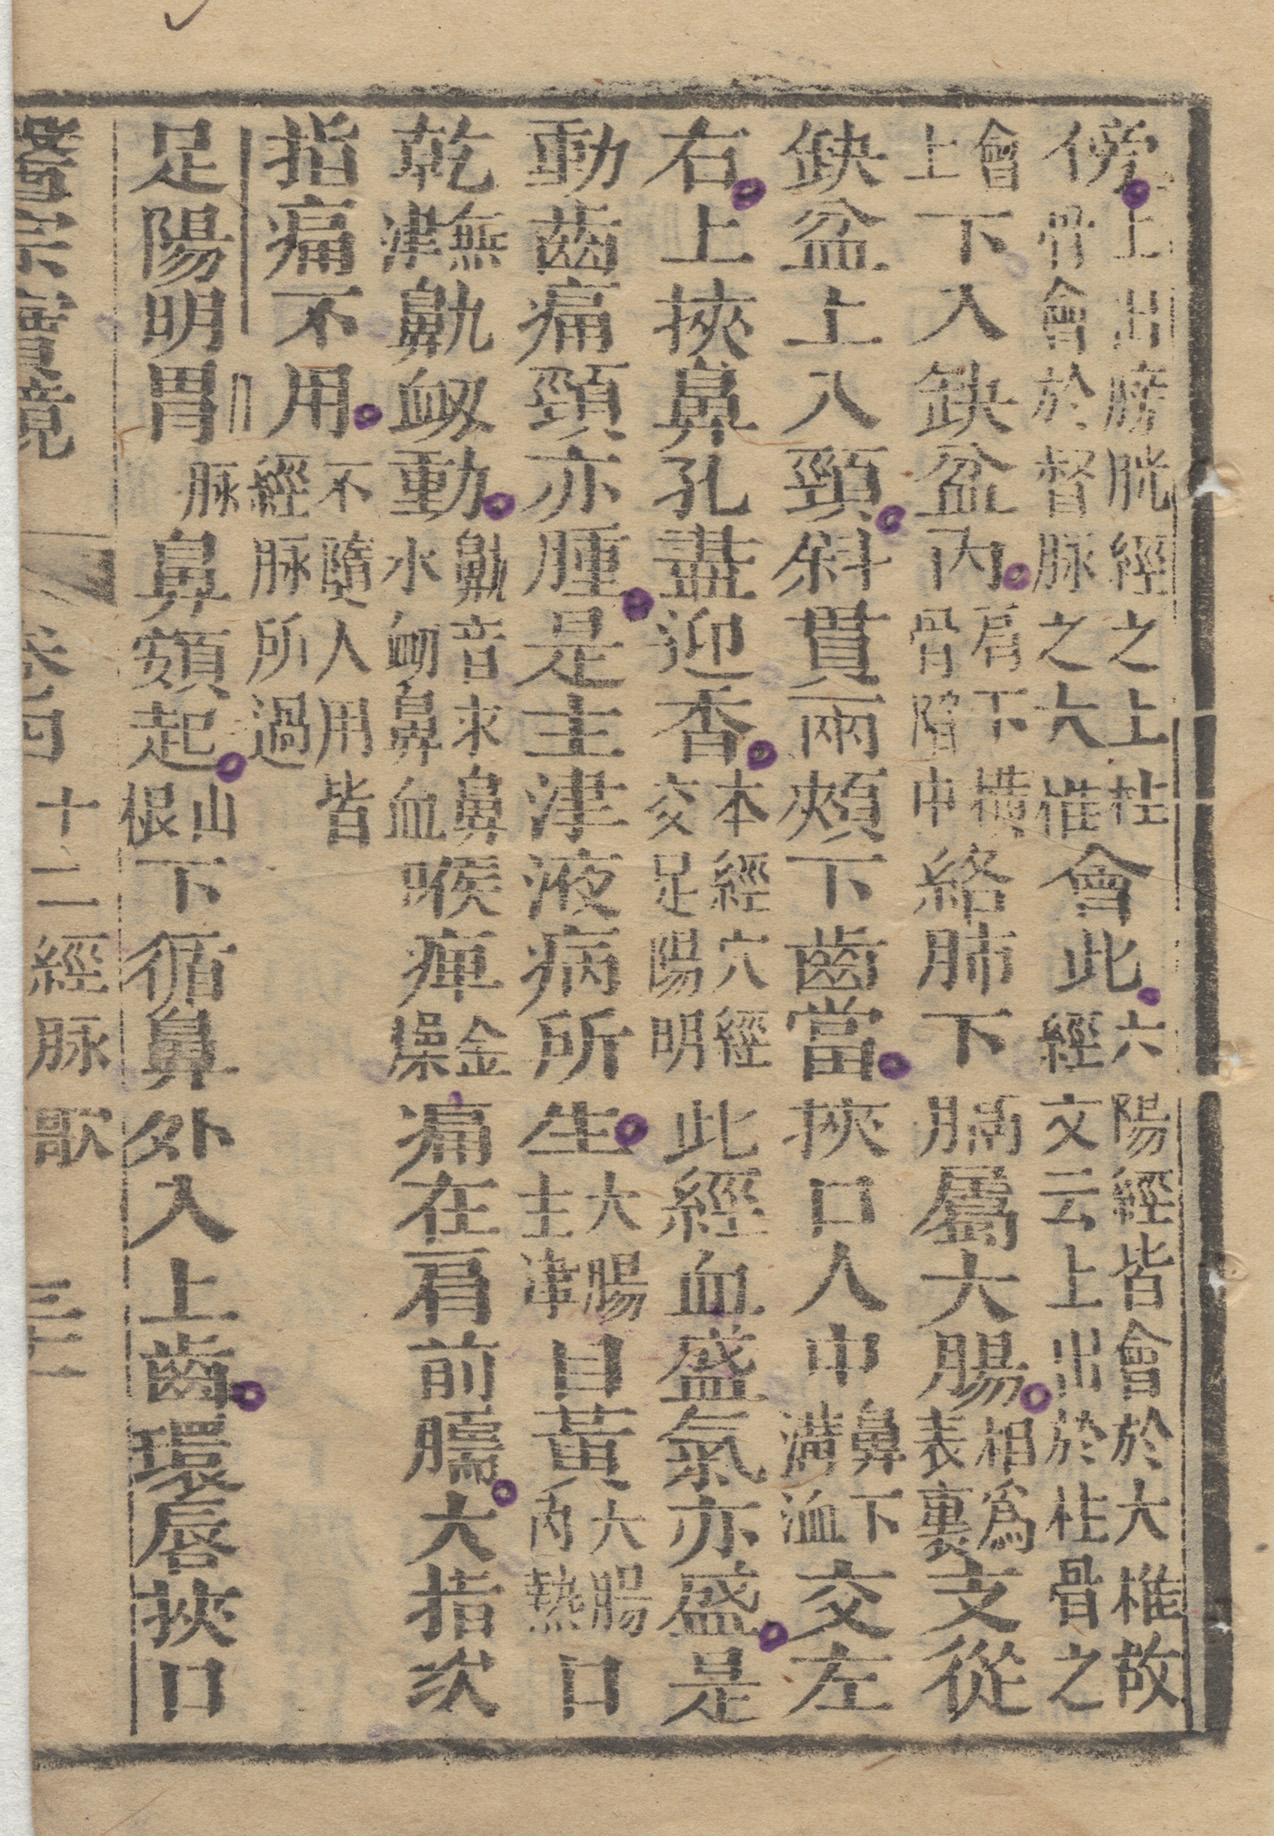 傍上出膀胱經之上柱骨會於督脉之大椎會此六陽經皆會於大椎故經文云上出於柱骨之
會上下入缺盆內肩下横骨陷中絡肺下膈屬大腸相爲表裏支從
缺盆上入頸斜貫兩頰下齒當挾口人中鼻下溝洫交左
右上挾鼻孔盡迎香本經穴經交足陽明此經血盛氣亦盛是
動齒痛頸亦腫是主津液病所生大腸主津目黃大腸內熱口
乾無津鼽衂動鼽音求鼻水衂鼻血喉痺金燥痛在肩前臑大指次
指痛不用不隨人用皆經脉所過
足陽明胃脉鼻頞起山根下循鼻外入上齒環唇挾口
醫宗寶鏡 卷四 十二經脉歌